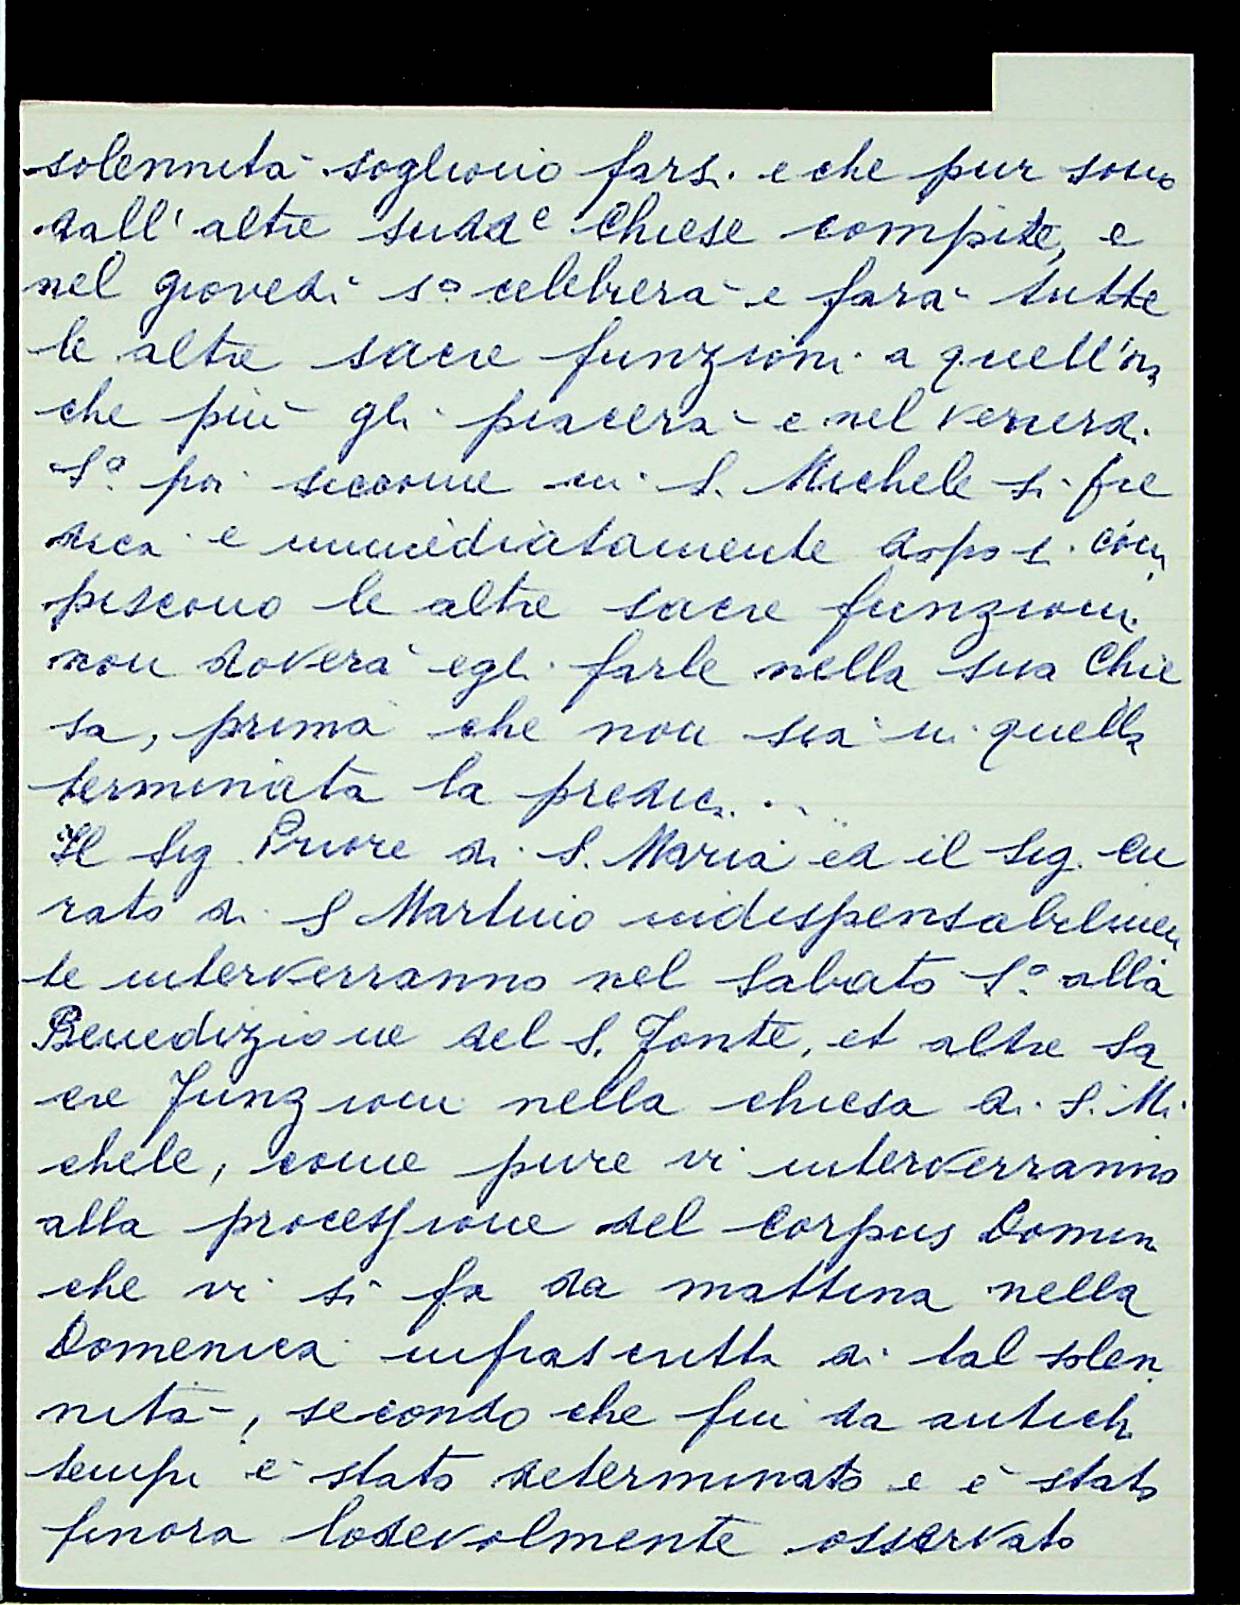 solennità sogliono farsi e che pur sono
dall'altre sudde Chiese compite, e
nel giovedì so celebrerà e farà tutte
le altre sacre funzioni a quell'ora
che più gli piacerà e nel venerdì
So. poi siccome in S. Michele si pre
dica e immediatamente dopo si com
piscono le altre sacre funzioni
non doverà egli farle nella sua Chie
sa, prima che non sia in quella
terminata la predica...
Il Sig. Priore di S. Maria ed il Sig. Cu
rato di S Martino indispensabilmen
te interverranno nel Sabato So. alla
Benedizione del S. Fonte, et altre Sa
cre Funzioni nella chiesa di S. Mi
chele, come pure vi interverranno
alla processione del Corpus Domin
che vi si fa da mattina nella
Domenica infrascritta di tal solen
nità, secondo che fin da antichi
tempi è stato determinato e è stato
finora lodevolmente osservato